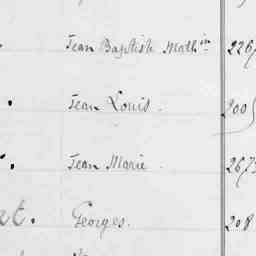 Jean Baptiste Math.in 226
Jean Louis. 200
Jean Marie. 267
et. Georges. 208